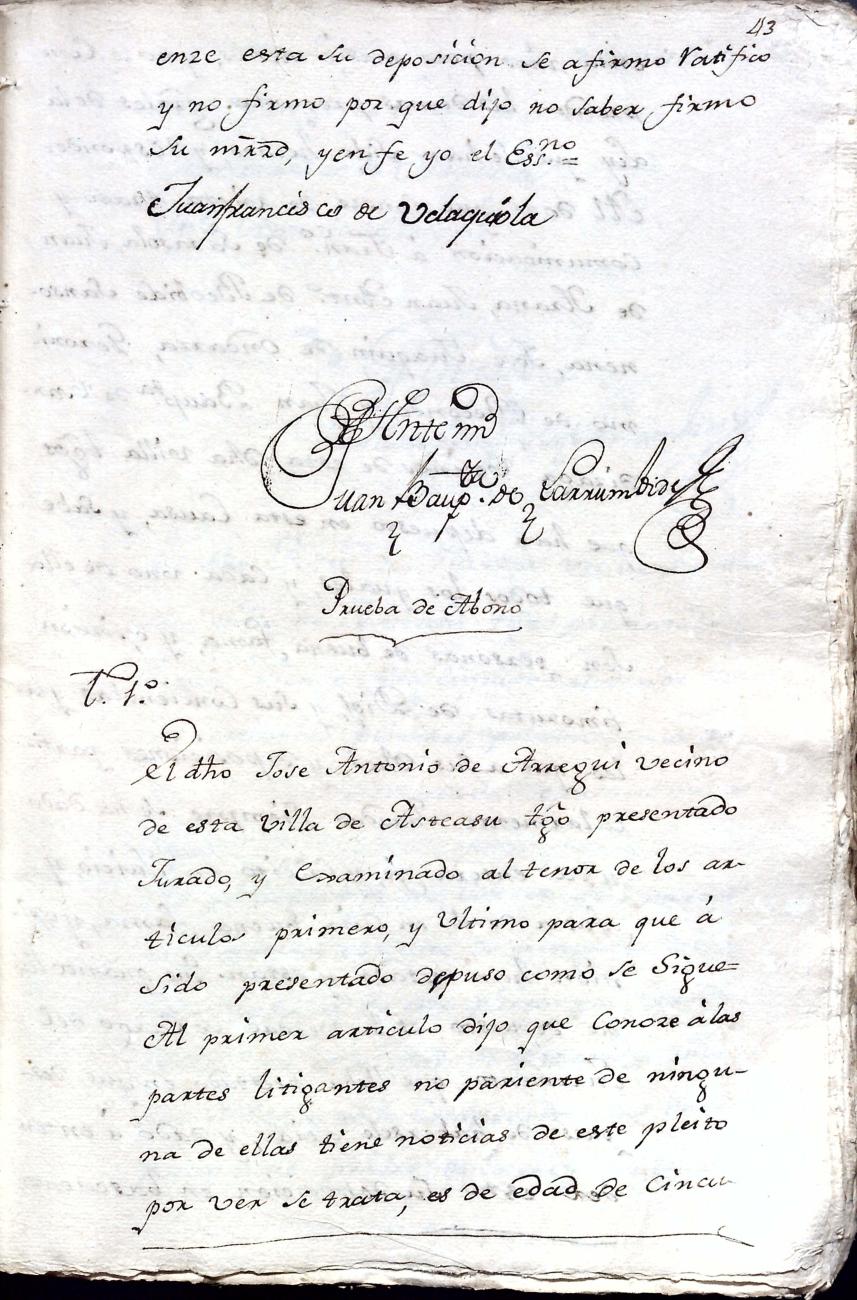 43
en2e esta su deposicion se afirmo Ratifico
y no firmo por que dijo no saber, firmo
su mrzd, yenfe yo el Ess.no =
Juanfrancisco de
Ante mi
Juan Baup.ta de Larrumbide
Prueba de Abono
T. 1.o
El dho Jose Antonio de Arregui vecino
de esta villa de Asteasu tgo presentado
Jurado, y Examinado al tenor de los ar-
ticulos primero, y Ultimo para que á
sido presentado depuso como se sigue=
Al primer articulo dijo que Conoze álas
partes litigantes no pariente de ningu-
na de ellas tiene noticias de este pleito
por ver se trata, es de edad de Cincu